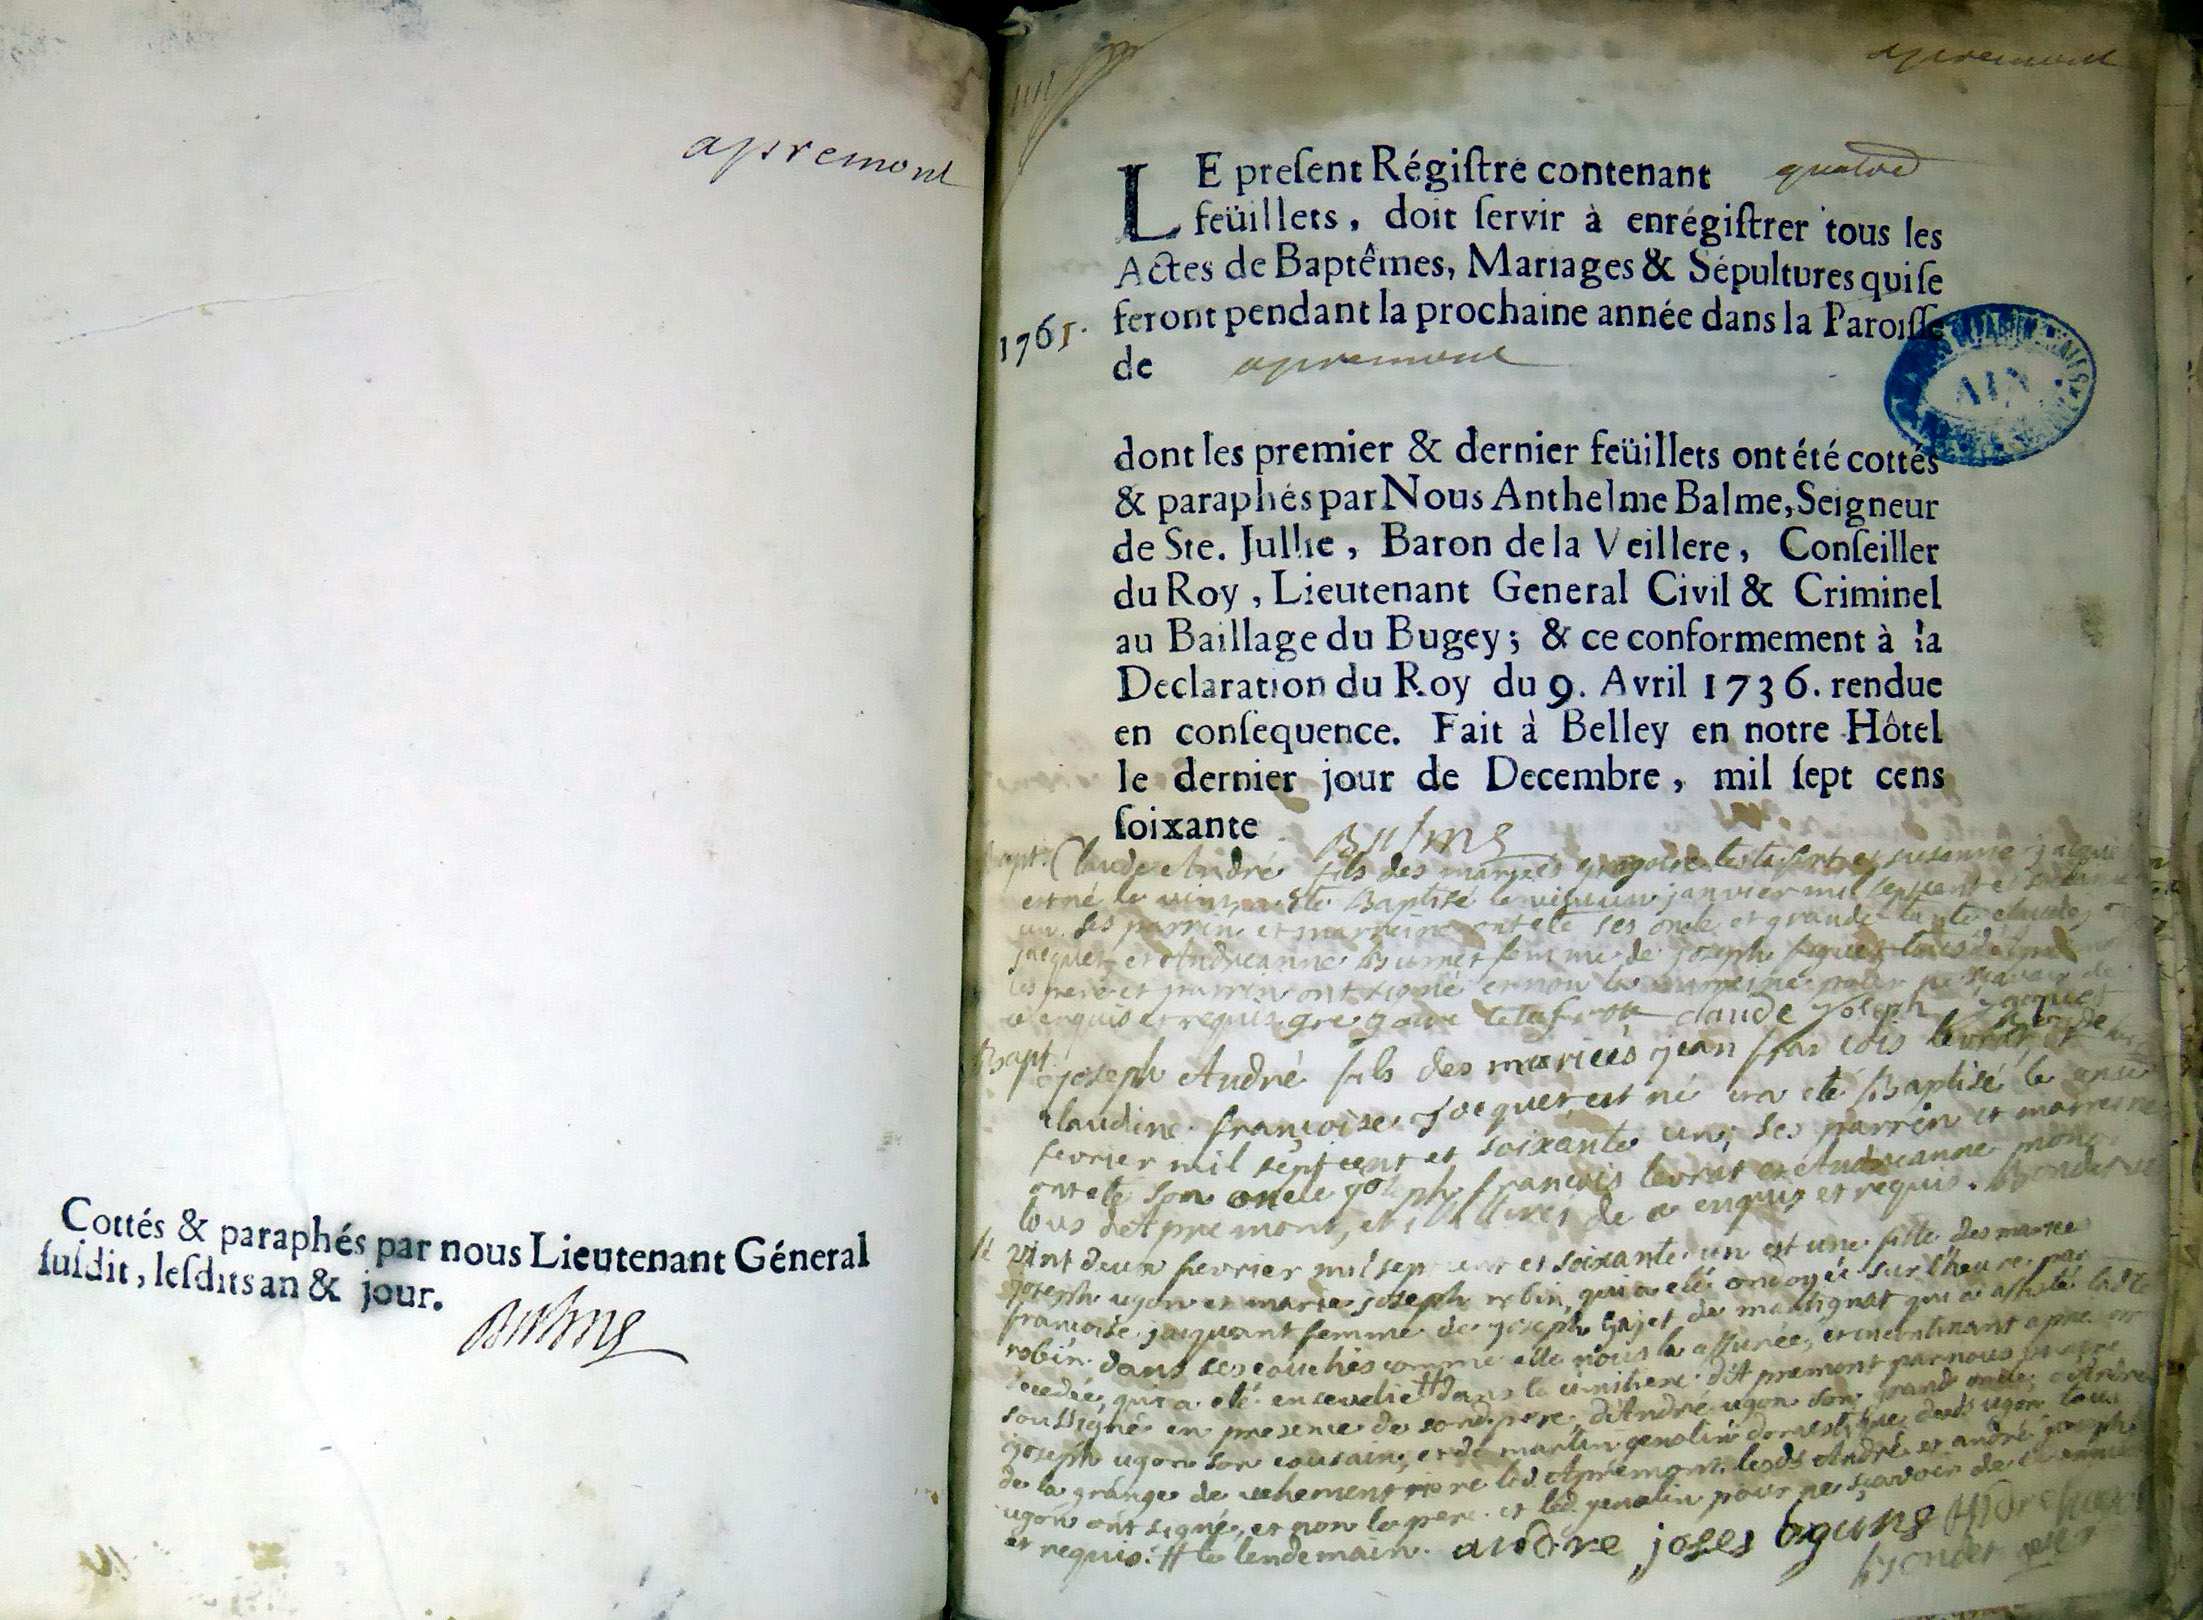 apremont
Cottés & paraphés par nous Lieutenant Géneral
ſuſdit, leſdits an & jour.
Balme
apremont
LE preſent Régiſtre contenant quatre
feüillets, doit ſervir à enrégiſtrer tous les
Actes de Baptêmes, Mariages & Sépultures qui ſe
feront pendant la prochaine année dans la Paroiſſe
1761.
de apremont
AIN
dont les premier & dernier feüillets ont été cottés
& paraphés par Nous Anthelme Balme, Seigneur
de Ste. Jullie, Baron de la Veillere, Conſeiller
du Roy, Lieutenant General Civil & Criminel
au Baillage du Bugey; & ce conformement à la
Declaration du Roy du 9. Avril 1736. rendue
en conſequence. Fait à Belley en notre Hôtel
le dernier jour de Decembre, mil ſept cens
ſoixante
Balme
Bapt. Claude André fils des mariés gregoire et susanne jaquet
est né le vint a eté Baptisé le janvier mil sept cent et soixante
un. ses parrin et marreine ont eté ses oncle et grande tante claude
jaquet et Andreanne femme de joseph
les pere et parrin ont signé et non la marreine pour ne sçavoir de
ce enquis et requis. gregoire claude joseph jaquet
Bapt. joseph André fils des mariés jean françois levrat et de
claudine françoise Jacquet est né et a eté Baptisé le
fevrier mil sept cent et soixante un, ses parrin et marreine
ont eté son oncle joseph françois levrat et Andreanne
tous d'Apremont, et illitérés de ce enquis et requis.
vint deux fevrier mil sept cent et soixante un est une fille des mariés
joseph ugon et marie joseph robin, qui a eté ondoyée sur l'heure par
françoise jaquant femme de joseph gajet de martignat qui a assisté ladte
robin dans ses couches comme elle nous la assurée, et incontinant apres
decedée, qui a eté ensevelie # dans le cimitiere d'Apremont par nous
soussigné en presence de sondt pere, d'André ugon son grand oncle, d'André
joseph ugon son cousain, et de martin genolin domestique desdts ugon tous
de la grange de led. Apremont. lesdts André et andré joseph
ugon ont signé, et non le pere et led. genolin pour ne sçavoir de ce enquis
et requis. # le lendemain. andre joses ogune